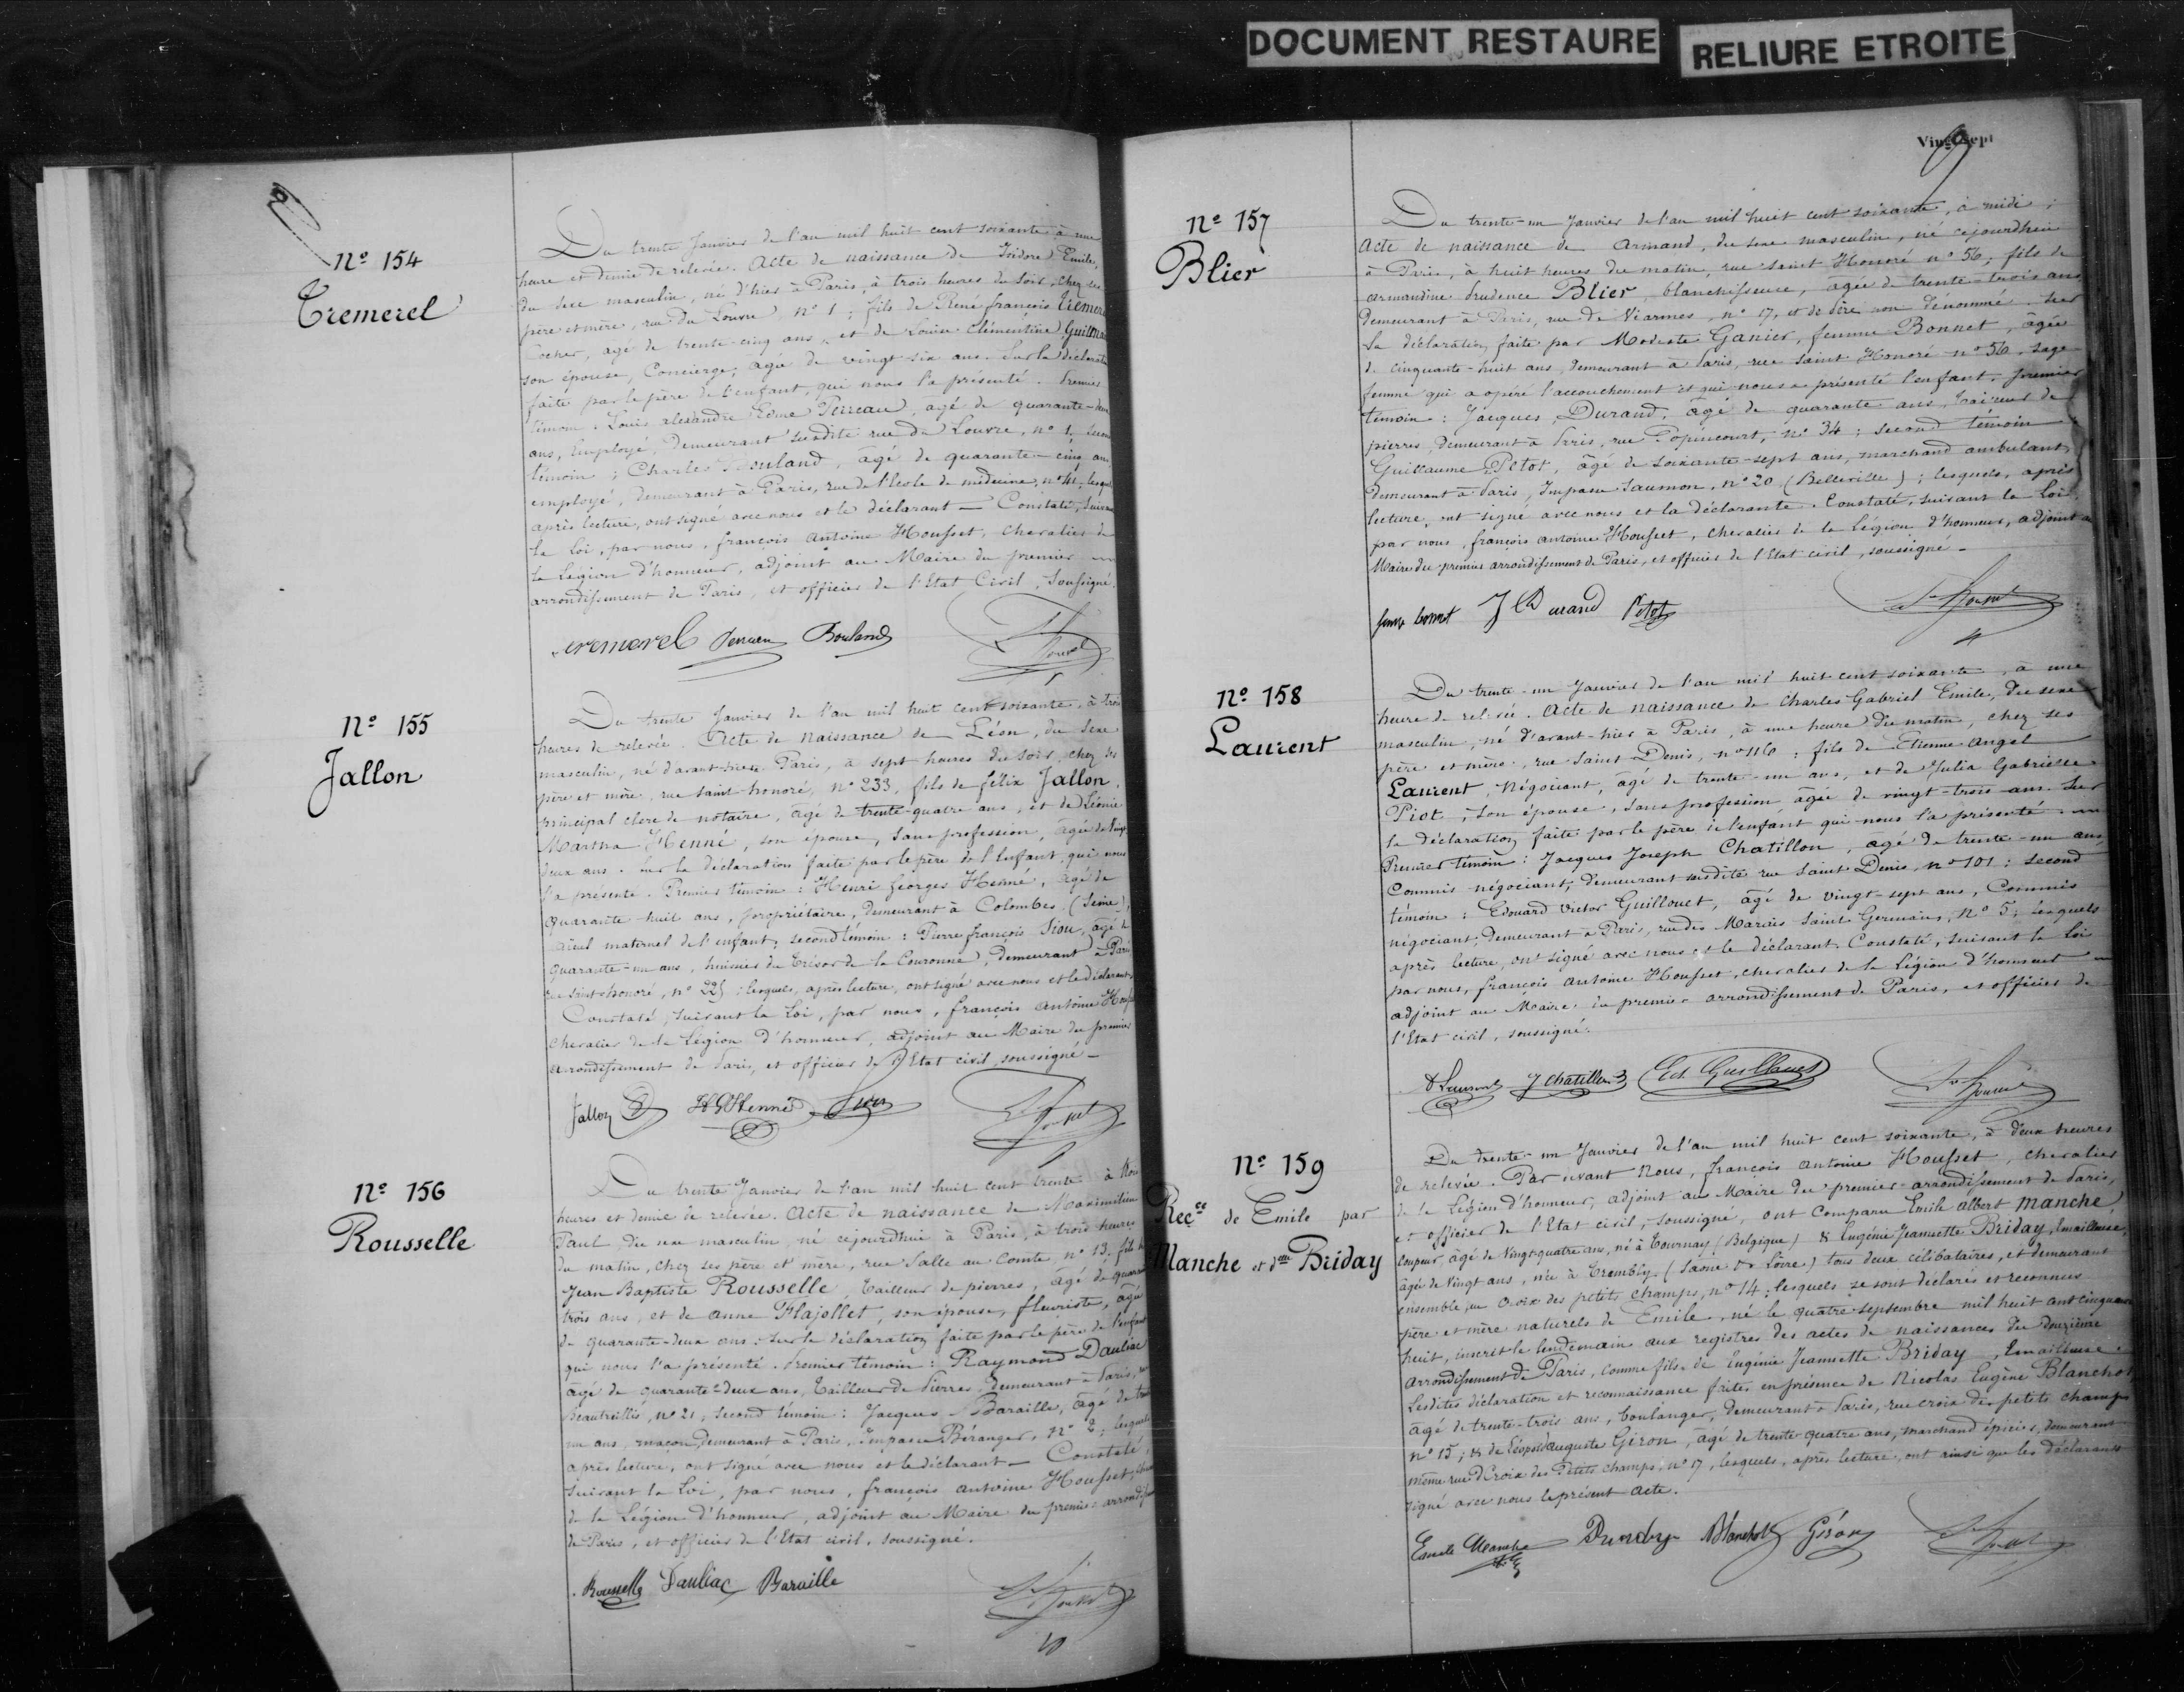 DOCUMENT RESTAURE
RELIURE ETROITE
Nº 154
Tremerel
Du trente Janvier de l'an mil huit cent soixante à une
heure et demie de relevée. Acte de naissance de Isidore Emile,
du sexe masculin, né d'hier à Paris, à trois heures du soir, chez ses
père et mère, rue du Louvre, nº 1; fils de René françois Tremerel
Cocher, agé de trente-cinq ans, et de Louise Clémentine
son épouse, Concierge, âgée de vingt-six ans. Sur la déclaration
faite par le père de l'enfant, qui nous l'a présenté. Premier
témoin: Louis alexandre Edme Perreau, agé de quarante-
ans, Employé, demeurant susdite rue du Louvre, nº 1, second
témoin; Charles Bouland, âgé de quarante-cinq ans,
employé, demeurant à Paris, rue de l'Ecole de médecine, nº 41, lesquels
après lecture, ont signé avec nous et le déclarant — Constaté, suivant
la Loi, par nous, françois antoine Housset, chevalier de
la Légion d'honneur, adjoint au Maire du premier
arrondissement de Paris, et officier de l'Etat Civil, soussigné.
Tremerel Perreau Bouland Housset
Nº 155
Jallon
Du trente Janvier de l'an mil huit cent soixante, à trois
heures de relevée. Acte de naissance de Léon, du sexe
masculin, né d'avant-hier à Paris, à sept heures du soir, chez ses
père et mère, rue saint honoré, nº 233, fils de félix Jallon,
principal clerc de notaire, âgé de trente-quatre ans, et de Léonie
Martha Henné, son épouse, sans profession, âgée de vingt
deux ans. sur la déclaration faite par le père de l'Enfant, qui nous
l'a présenté. Premier témoin: Henri Georges Henné, âgé de
quarante-huit ans, propriétaire, demeurant à Colombes (Seine),
aïeul maternel de l'enfant; second témoin: Pierre françois Siou, âgé de
quarante-un ans, huissier du Trésor de la Couronne, demeurant à Paris
rue Saint-honoré, nº 225; lesquels, après lecture, ont signé avec nous et le déclarant.
Constaté, suivant la Loi, par nous, françois antoine Housset
Chevalier de la Légion d'honneur, adjoint au Maire du premier
arrondissement de Paris, et officier de l'Etat civil, soussigné —
Jallon H G Henné Siou Housset
Nº 156
Rousselle
Du trente Janvier de l'an mil huit cent trente à trois
heures et demie de relevée. Acte de naissance de Maximilien
Paul, du sexe masculin, né cejourdhui à Paris, à trois heures
du matin, chez ses père et mère, rue Salle au Comte nº 13; fils de
Jean Baptiste Rousselle, tailleur de pierres, âgé de quarante
trois ans, et de anne Flajollet, son épouse, fleuriste, âgée
de quarante-deux ans: sur la déclaration faite par le père de l'enfant
qui nous l'a présenté. Premier témoin: Raymond Dauliac
âgé de quarante-deux ans, tailleur de Pierres, demeurant à Paris, rue
Beautreillis, nº 21, second témoin: Jacques Baraille, âgé de trente
un ans, maçon, demeurant à Paris, Impasse Béranger, nº 2; lesquels
après lecture, ont signé avec nous et le déclarant — Constaté,
suivant la Loi, par nous, françois antoine Housset,
de la Légion d'honneur, adjoint au Maire du premier arrondissement
de Paris, et officier de l'Etat civil, soussigné.
Rousselle Dauliac Baraille Housset
10
Vingt-sept
Nº 157
Blier
Du trente-un Janvier de l'an mil huit cent soixante, à midi;
Acte de naissance de Armand, du sexe masculin, né cejourdhui
à Paris, à huit heures du matin, rue Saint Honoré nº 56; fils de
armandine Prudence Blier, blanchisseuse, agée de trente-trois ans
demeurant à Paris, rue de Viarmes, nº 17, et de Père non dénommé. Sur
la déclaration faite par Modeste Ganier, femme Bonnet, âgée
de cinquante-huit ans, demeurant à Paris, rue Saint Honoré nº 56, sage
femme qui a opéré l'accouchement et qui nous a présenté l'enfant. premier
témoin: Jacques Durand, âgé de quarante ans, tailleur de
pierres, demeurant à Paris, rue Popincourt, nº 34; second témoin
Guillaume Petot, âgé de soixante-sept ans, marchand ambulant,
demeurant à Paris, Impasse Saumon, nº 20 (Belleville); lesquels, après
lecture, ont signé avec nous et la déclarante. Constaté, suivant la Loi,
par nous, françois antoine Housset, chevalier de la Légion d'honneur, adjoint au
Maire du premier arrondissement de Paris, et officier de l'Etat civil, soussigné —
femme bonnet J Durand Petot Housset
Nº 158
Laurent
Du trente-un Janvier de l'an mil huit cent soixante, à une
heure de relevée. Acte de naissance de Charles Gabriel Emile, du sexe
masculin, né d'avant-hier à Paris, à une heure du matin, chez ses
père et mère, rue Saint Denis, nº 116; fils de Etienne Angel
Laurent, Négociant, âgé de trente-un ans, et de Julia Gabrielle
Piot, son épouse, sans profession, âgée de vingt-trois ans. Sur
la déclaration faite par le père de l'enfant qui nous l'a présenté.
Premier témoin: Jacques Joseph Chatillon, âgé de trente-un ans,
Commis négociant, demeurant susdite rue Saint Denis, nº 101; second
témoin: Edouard Victor Guillouet, âgé de vingt-sept ans, Commis
négociant, demeurant à Paris, rue des Marais Saint Germain, nº 5; lesquels
après lecture, ont signé avec nous et le déclarant. Constaté, suivant la Loi
par nous, françois antoine Housset, chevalier de la Légion d'honneur
adjoint au Maire du premier arrondissement de Paris, et officier de
l'Etat civil, soussigné.
Laurent J Chatillon Ed Guillouet Housset
Nº 159
Recce de Emile par
Manche et dlle Briday
Du trente-un Janvier de l'an mil huit cent soixante, à deux heures
de relevée. Par devant Nous, françois antoine Housset, chevalier
de la Légion d'honneur, adjoint au Maire du premier arrondissement de Paris,
et officier de l'Etat civil, soussigné, ont comparu Emile albert Manche,
coupeur, âgé de vingt-quatre ans, né à Tournay (Belgique) & Eugénie Jeannette Briday, Emailleuse,
âgée de vingt ans, née à Trembly (Saone & Loire) tous deux célibataires, et demeurant
ensemble, rue Croix des petits champs, nº 14; lesquels se sont déclarés et reconnus
père et mère naturels de Emile, né le quatre septembre mil huit cent cinquante
huit, inscrit le lendemain aux registres des actes de naissances du douzième
arrondissement de Paris, comme fils de Eugénie Jeannette Briday, Emailleuse.
Lesdites déclaration et reconnaissance faites en présence de Nicolas Eugène Blanchot
âgé de trente-trois ans, boulanger, demeurant à Paris, rue croix des petits champs
nº 15; & de Léopold auguste Giron, âgé de trente-quatre ans, marchand épicier, demeurant
même rue Croix des Petits champs, nº 17, lesquels, après lecture, ont ainsi que les déclarants
signé avec nous le présent acte.
Emile Manche Blanchot Giron Housset